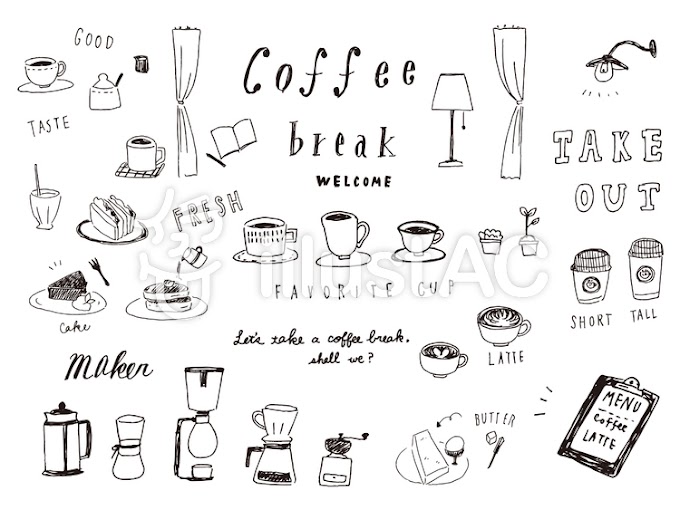 GOOD
TASTE
Coffee
break
WELCOME
TAKE
OUT
FRESH
FAVORITE CUP
Cake
Let's take a coffee break,
shell we?
LATTE
SHORT
TALL
Maker
BUTTER
MENU
coffee
LATTE
illustAC